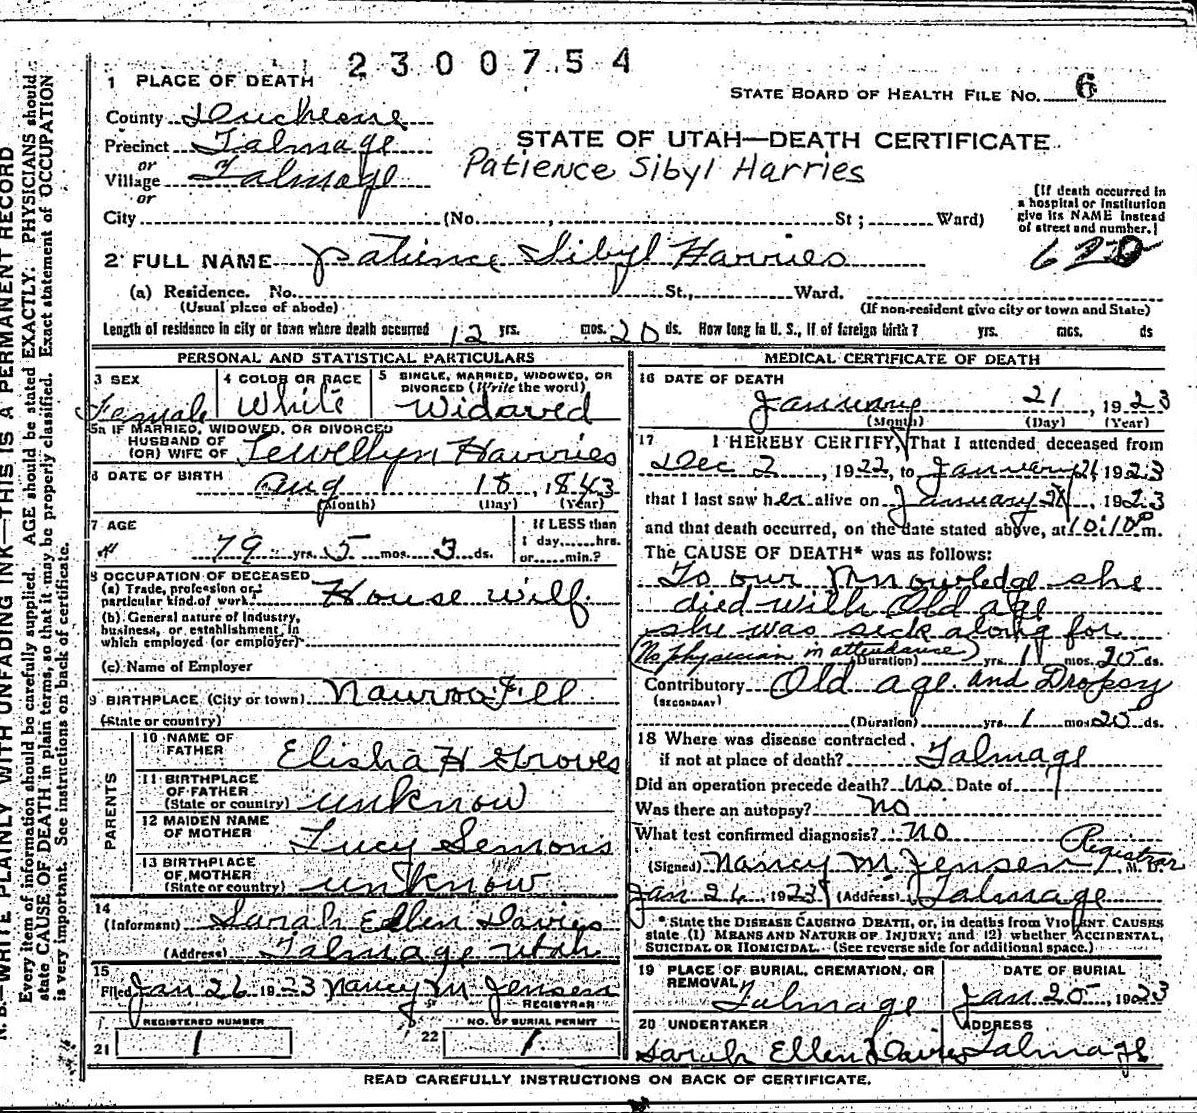 2300754
1 PLACE OF DEATH
STATE BOARD OF HEALTH FILE NO. 6
County Duchesne
STATE OF UTAH—DEATH CERTIFICATE
Precinct Talmage
or
Patience Sibyl Harries
Village Talmage
or
City (No. , St ; Ward)
(If death occurred in
a hospital or institution
give its NAME instead
of street and number.)
620
2 FULL NAME Patience Sibyl Harries
(a) Residence. No. St., Ward.
(Usual place of abode) (If non-resident give city or town and State)
Length of residence in city or town where death occurred 12 yrs. mos. 20 ds. How long in U. S., if of foreign birth? yrs. mos. ds
PERSONAL AND STATISTICAL PARTICULARS
3 SEX
Female
4 COLOR OR RACE
White
5 SINGLE, MARRIED, WIDOWED, OR
DIVORCED (Write the word)
Widowed
5a IF MARRIED, WIDOWED, OR DIVORCED
HUSBAND OF
(OR) WIFE OF Lewellyn Harries
6 DATE OF BIRTH
Aug 18, 1843
(Month) (Day) (Year)
7 AGE
79 yrs. 5 mos. 3 ds.
If LESS than
1 day......hrs.
or......min.?
8 OCCUPATION OF DECEASED
(a) Trade, profession or
particular kind of work? House wilf
(b) General nature of Industry,
business, or establishment in
which employed (or employer)
(c) Name of Employer
9 BIRTHPLACE (City or town) Nauvoo Ill
(State or country)
PARENTS
10 NAME OF
FATHER Elisha H Groves
11 BIRTHPLACE
OF FATHER
(State or country) unknow
12 MAIDEN NAME
OF MOTHER Lucy Semons
13 BIRTHPLACE
OF MOTHER
(State or country) unknow
14
(Informant) Sarah Ellen Davies
(Address) Talmage Utah
15
Filed Jan 26 1923 Nancy M Jensen
REGISTRAR
REGISTERED NUMBER
21 1
NO. OF BURIAL PERMIT
22 1
MEDICAL CERTIFICATE OF DEATH
16 DATE OF DEATH
January 21, 1923
(Month) (Day) (Year)
17 I HEREBY CERTIFY, That I attended deceased from
Dec 2, 1922, to January 21, 1923
that I last saw her alive on January, 1923
and that death occurred, on the date stated above, at 10:10 P m.
The CAUSE OF DEATH* was as follows:
To our Knowledge she
died with Old age
she was sick along for
(No physician in attendance) (Duration) yrs. 1 mos. 25 ds.
Contributory Old age and Dropsy
(SECONDARY)
(Duration) yrs. 1 mos 25 ds.
18 Where was disease contracted
if not at place of death? Talmage
Did an operation precede death? no Date of
Was there an autopsy? no
What test confirmed diagnosis? no
Registrar
(Signed) Nancy M Jensen, M. D.
Jan 26, 1923 (Address) Talmage
* State the DISEASE CAUSING DEATH, or, in deaths from VIOLENT CAUSES
state (1) MEANS AND NATURE OF INJURY; and (2) whether ACCIDENTAL,
SUICIDAL OR HOMICIDAL. (See reverse side for additional space.)
19 PLACE OF BURIAL, CREMATION, OR
REMOVAL Talmage
DATE OF BURIAL
Jan 25, 1923
20 UNDERTAKER
Sarah Ellen Davies
ADDRESS
Talmage
READ CAREFULLY INSTRUCTIONS ON BACK OF CERTIFICATE.
N. B.—WRITE PLAINLY WITH UNFADING INK—THIS IS A PERMANENT RECORD
Every item of information should be carefully supplied. AGE should be stated EXACTLY. PHYSICIANS should
state CAUSE OF DEATH in plain terms, so that it may be properly classified. Exact statement of OCCUPATION
is very important. See instructions on back of certificate.